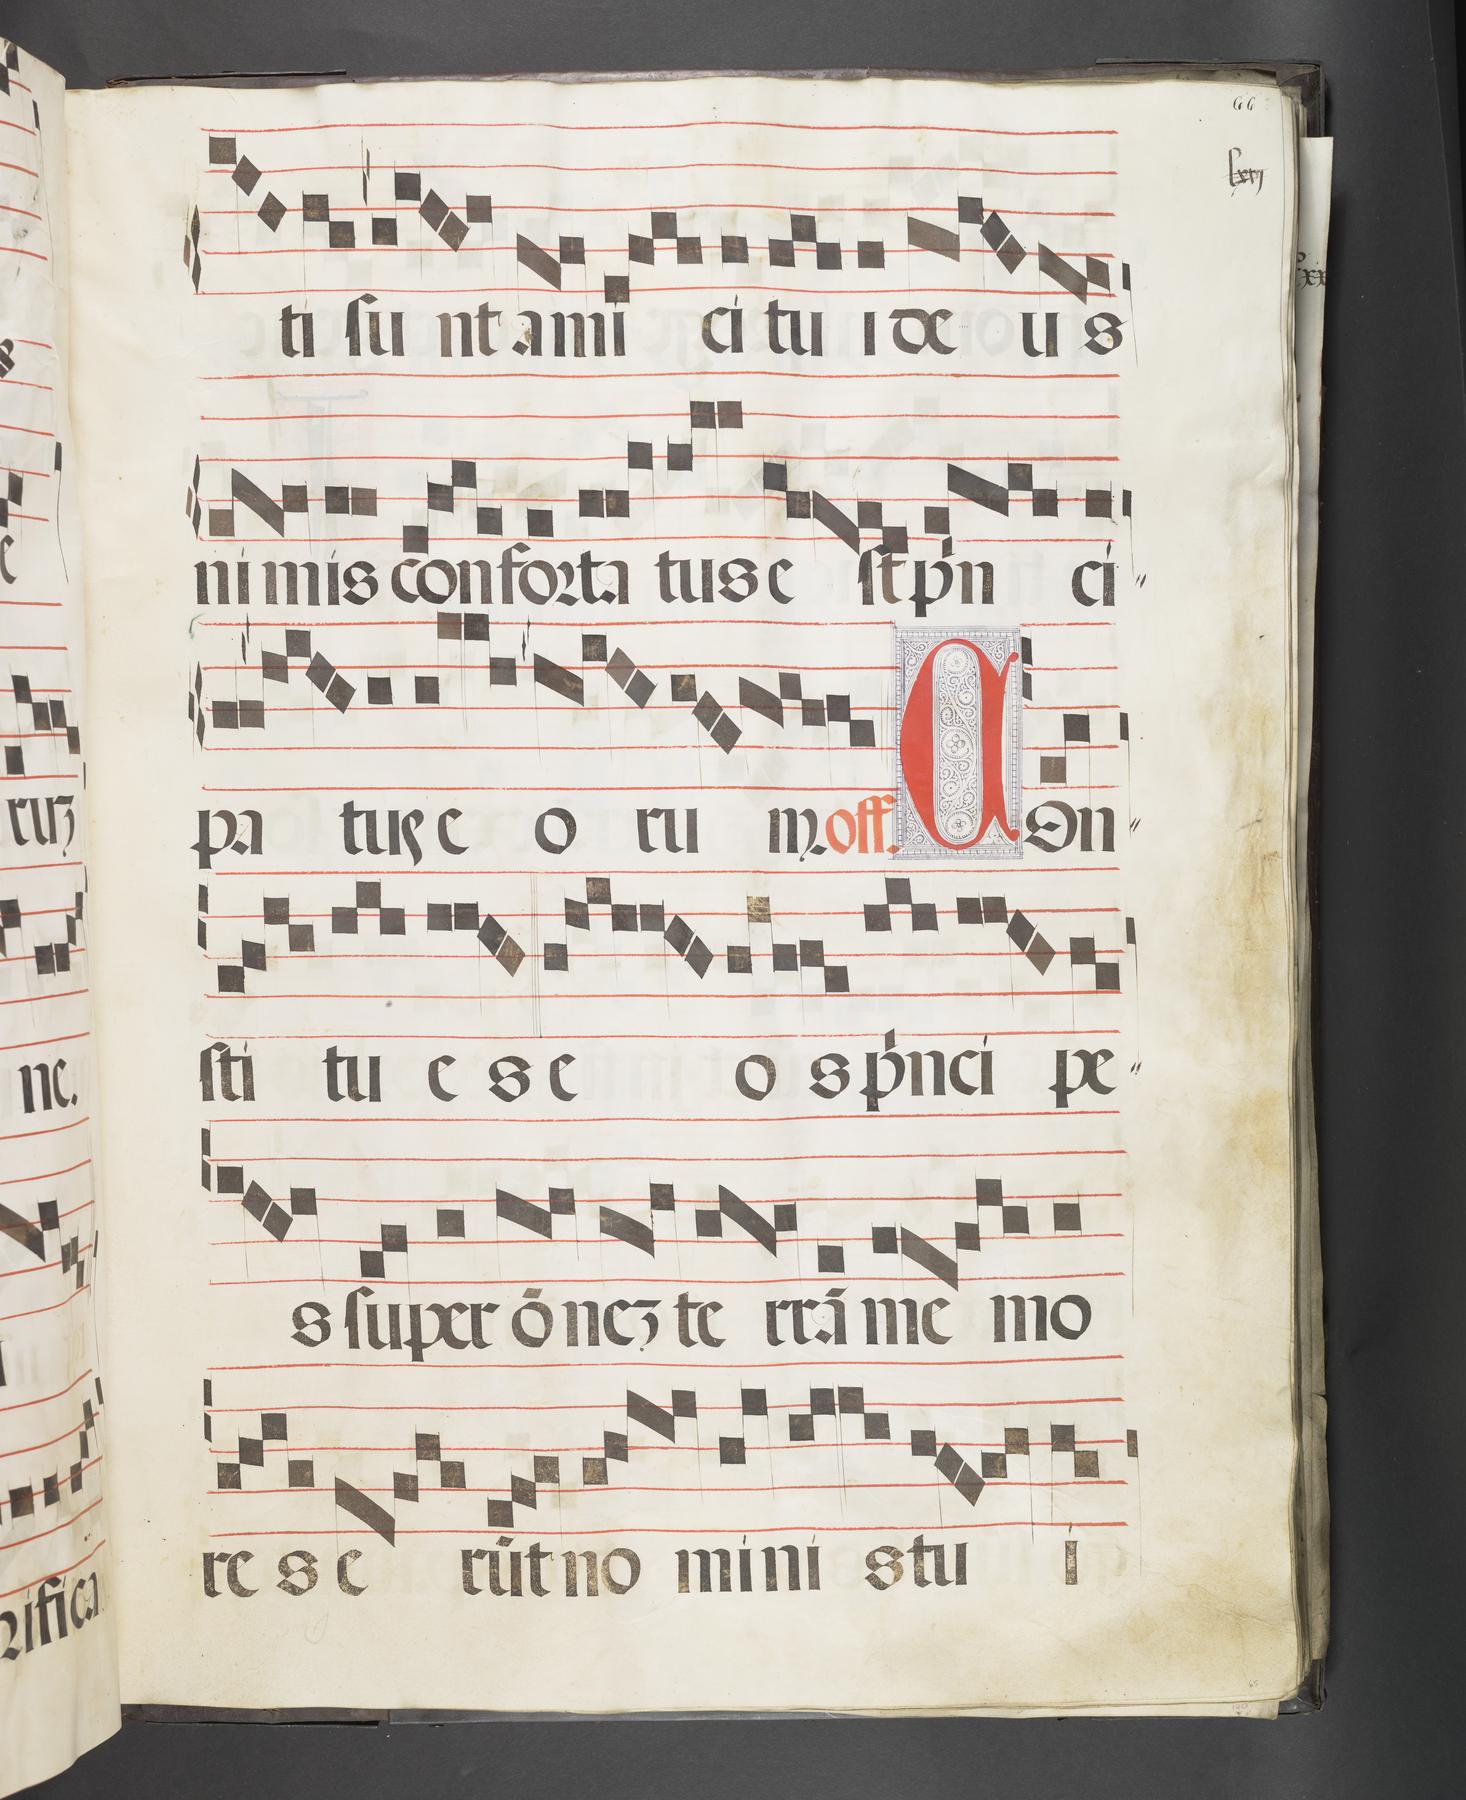 66
lxvj
ti su nt ami ci tu i de us
ni mis conforta tus e st p̓n ci〃
pa tus e o ru m. off. Con〃
sti tu e s e o s p̓nci pe〃
s super ōnez te rrā me mo
re s e rūt no mini s tu i
65